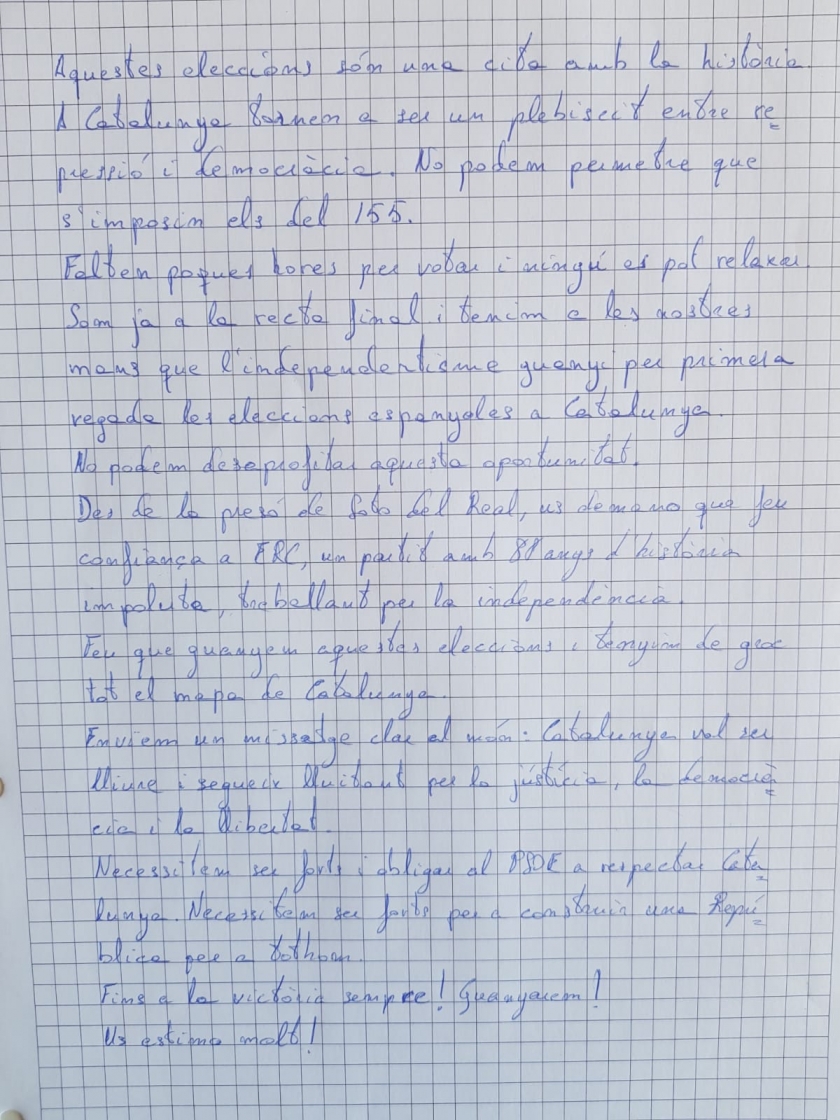 Aquestes eleccions són una cita amb la història.
A Catalunya tornem a ser un plebiscit entre re
pressió i democràcia. No podem permetre que
s'imposin els del 155.
Falten poques hores per votar i ningú es pot relaxar.
Som ja a la recta final i tenim a les nostres
mans que l'independentisme guanyi per primera
vegada les eleccions espanyoles a Catalunya.
No podem desaprofitar aquesta oportunitat.
Des de la presó de Soto del Real, us demano que feu
confiança a ERC, un partit amb 88 anys d'història
impoluta, treballant per la independència.
Feu que guanyem aquestes eleccions i tenyim de groc
tot el mapa de Catalunya.
Enviem un missatge clar al món: Catalunya vol ser
lliure i segueix lluitant per la jústicia, la democrà
cia i la llibertat.
Necessitem ser forts i obligar al PSOE a respectar Cata
lunya. Necessitem ser forts per a construir una Repú
blica per a tothom.
Fins a la victòria sempre! Guanyarem!
Us estimo molt!